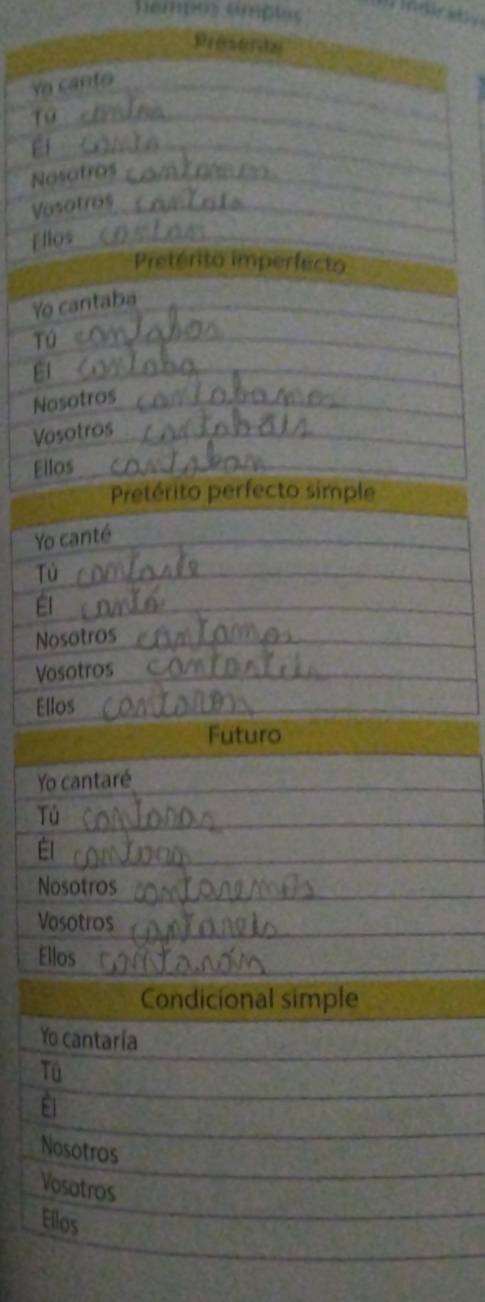 Tiempos simples
Presente
Yo canto
Tú
Él canta
Nosotros cantamos
Vosotros cantais
Ellos cantan
Pretérito imperfecto
Yo cantaba
Tú cantabas
Él cantaba
Nosotros cantabamos
Vosotros cantabais
Ellos cantaban
Pretérito perfecto simple
Yo canté
Tú cantaste
Él cantó
Nosotros cantamos
Vosotros cantasteis
Ellos cantaron
Futuro
Yo cantaré
Tú cantaras
Él cantara
Nosotros cantaremos
Vosotros cantareis
Ellos cantarán
Condicional simple
Yo cantaría
Tú
Él
Nosotros
Vosotros
Ellos